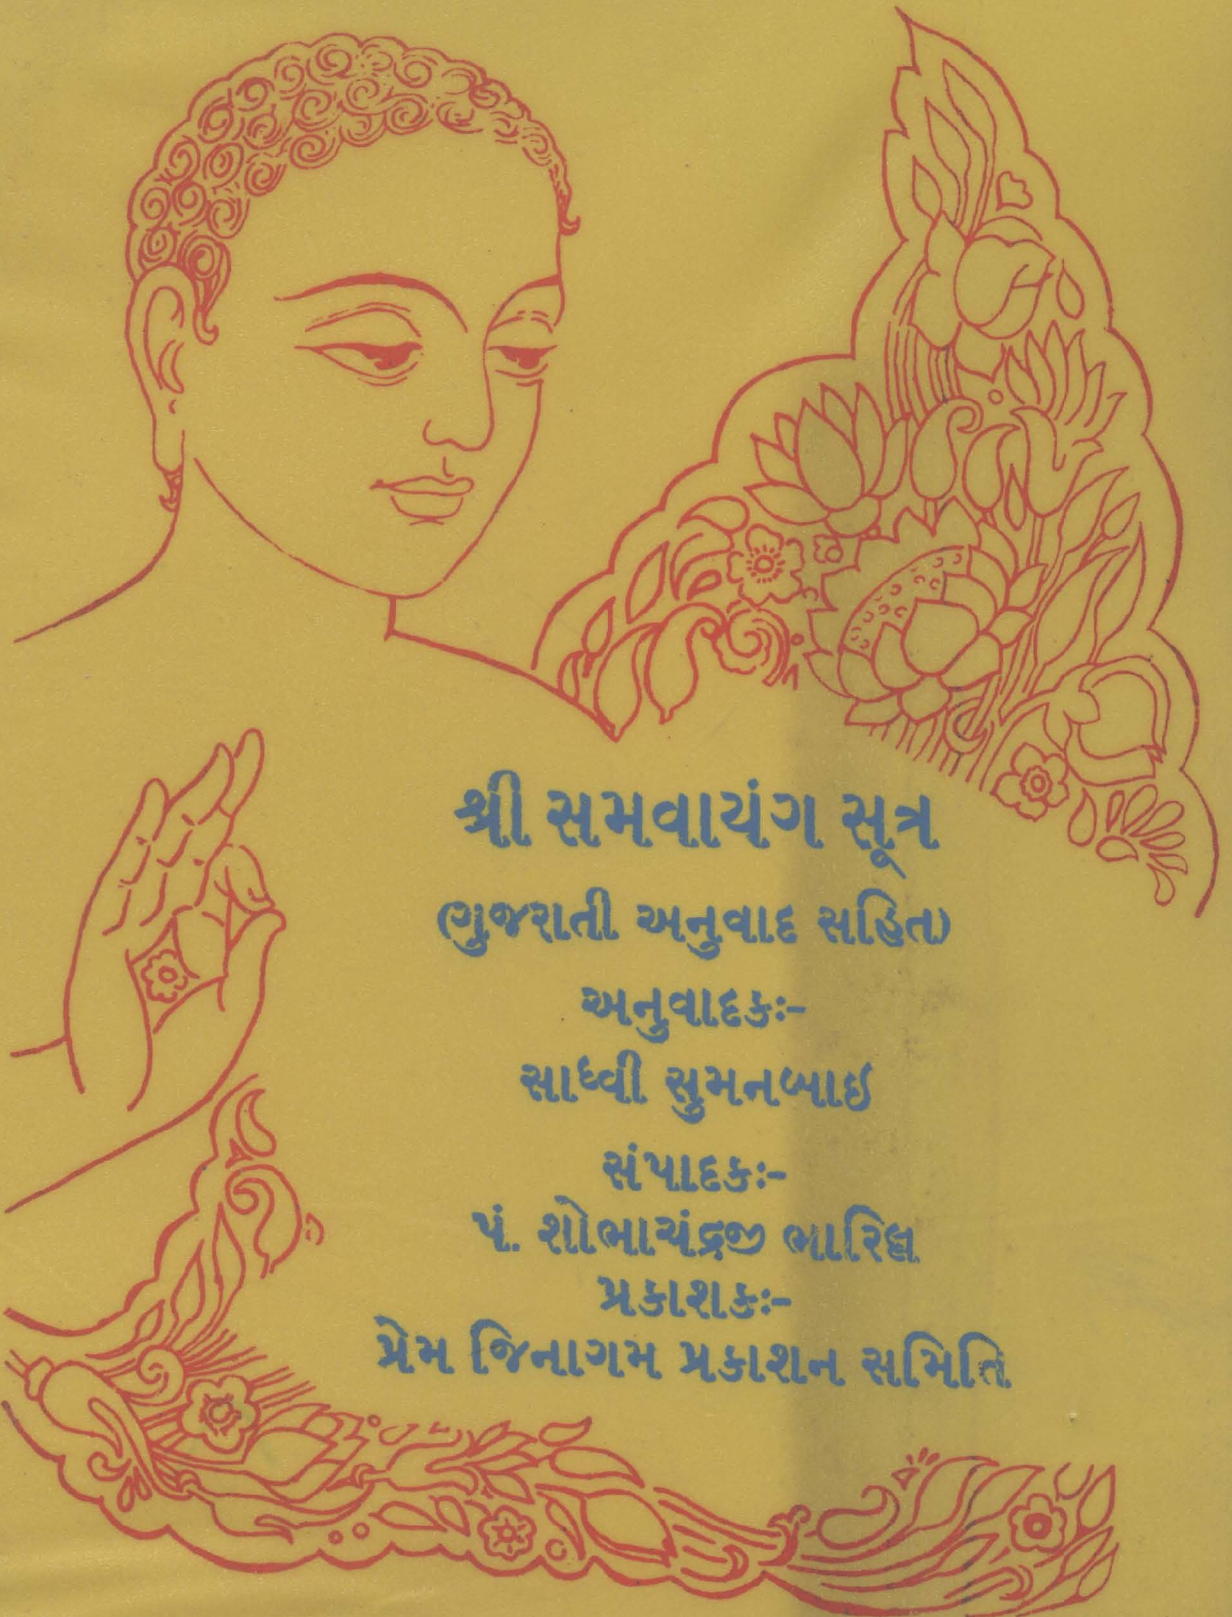 શ્રી સમવાયંગ સૂત્ર
(ગુજરાતી અનુવાદ સહિત)
અનુવાદકઃ-
સાધ્વી સુમનબાઇ
સંપાદકઃ-
પં. શોભાચંદ્રજી ભારિલ્લ
પ્રકાશકઃ-
પ્રેમ જિનાગમ પ્રકાશન સમિતિ